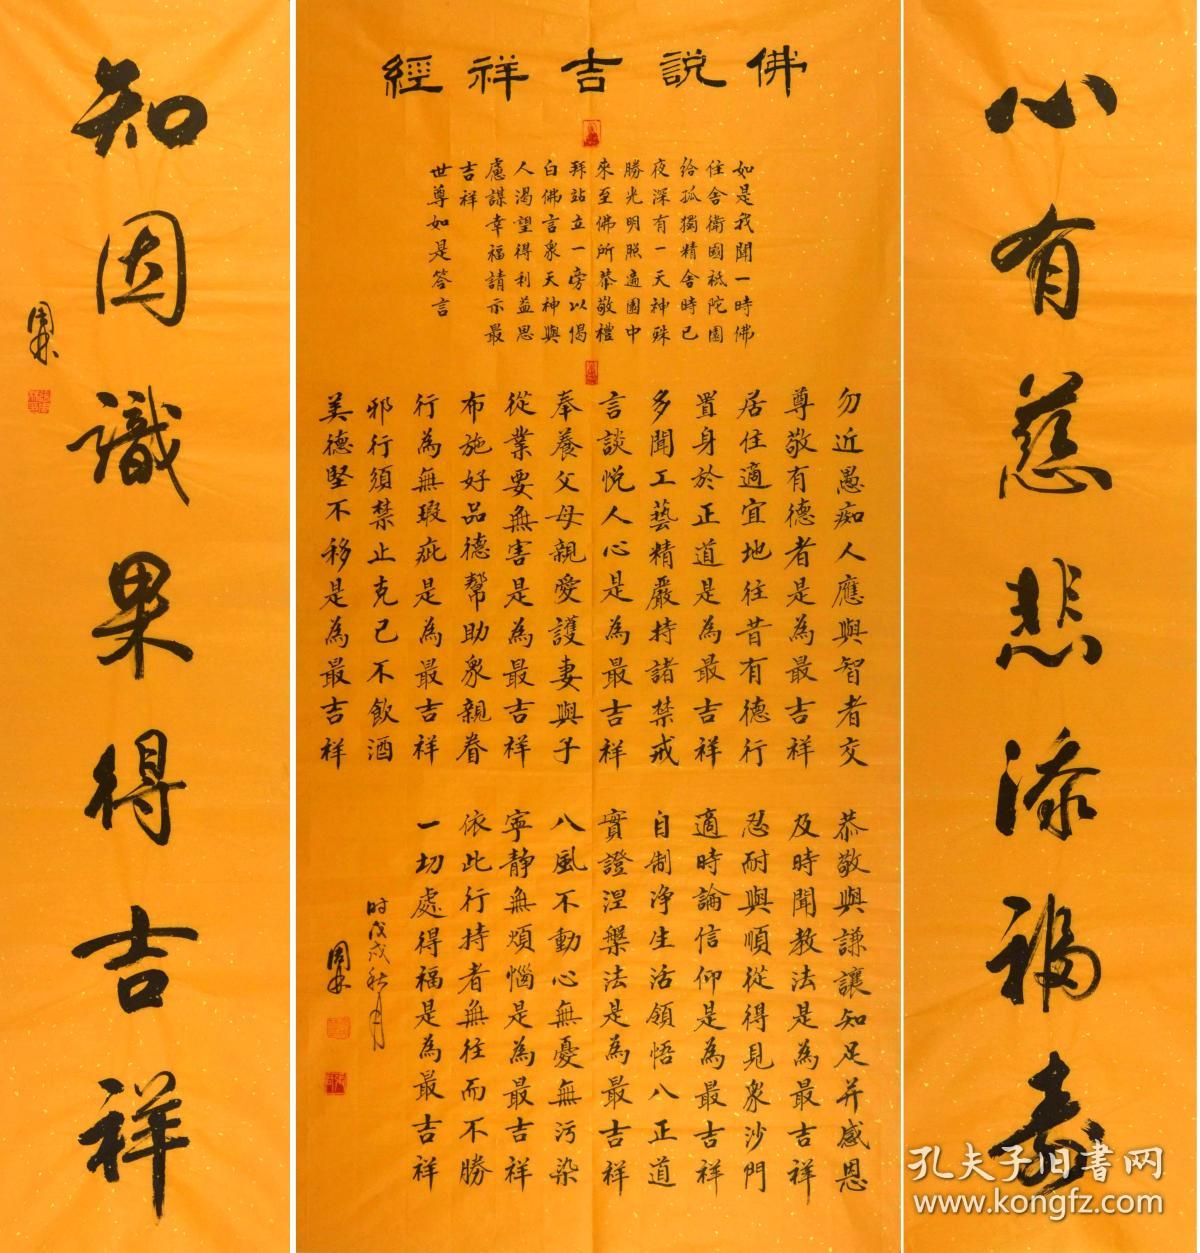 心有慈悲添福壽
佛說吉祥經
如是我聞一時佛
住舍衛國祇陀園
給孤獨精舍時已
夜深有一天神殊
勝光明照遍園中
來至佛所恭敬禮
拜站立一旁以偈
白佛言眾天神與
人渴望得利益思
慮謀幸福請示最
吉祥
世尊如是答言
勿近愚痴人應與智者交
尊敬有德者是為最吉祥
居住適宜地往昔有德行
置身於正道是為最吉祥
多聞工藝精嚴持諸禁戒
言談悅人心是為最吉祥
奉養父母親愛護妻與子
從業要無害是為最吉祥
布施好品德幫助眾親眷
行為無瑕疵是為最吉祥
邪行須禁止克己不飲酒
美德堅不移是為最吉祥
恭敬與謙讓知足并感恩
及時聞教法是為最吉祥
忍耐與順從得見眾沙門
適時論信仰是為最吉祥
自制净生活領悟八正道
實證涅槃法是為最吉祥
八風不動心無憂無污染
寧静無煩惱是為最吉祥
依此行持者無往而不勝
一切處得福是為最吉祥
时戊戌秋月
知因識果得吉祥
孔夫子旧書网
www.kongfz.com